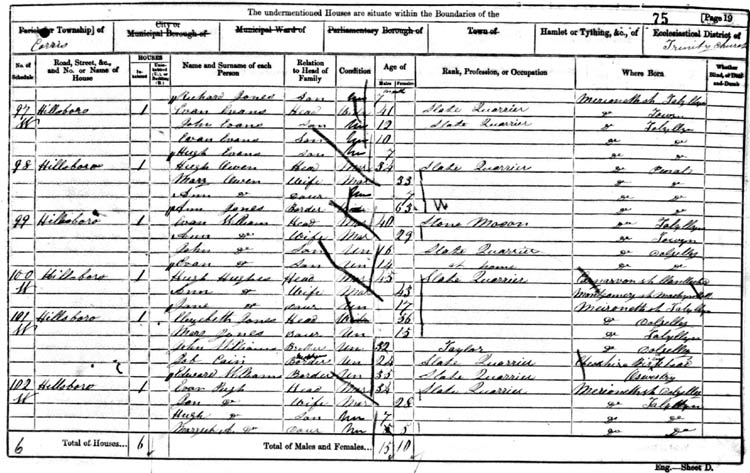 The undermentioned Houses are situate within the Boundaries of the
75 Page 19
Parish or Township] of
City or Municipal Borough of
Municipal Ward of
Parliamentary Borough of
Town of
Hamlet or Tything, &c., of
Ecclesiastical District of
Corris
Trinity Church
No. of Schedule
Road, Street, &c., and No. or Name of House
HOUSES
Name and Surname of each Person
Relation to Head of Family
Condition
Age of
Males
Females
Rank, Profession, or Occupation
Where Born
Whether Blind, or Deaf-and-Dumb
Richard Jones Son Un Merionethsh Talyllyn
97 Hillsboro 1 Evan Evans Head 41 Slate Quarrier do Towyn
John Evans Son Un 12 Slate Quarrier do Talyllyn
Evan Evans Son Un 10 do do
Hugh Evans Son Un 7 do do
98 Hillsboro 1 Hugh Owen Head Mar 34 Slate Quarrier do
Mary Owen Wife Mar 33 do do
Ann do Daur Un 7 do do
Ann Jones Border 63 do do
99 Hillsboro 1 Evan William Head Mar 40 Stone Mason do Talyllyn
Ann do Wife Mar 29 do Towyn
John do Son Un 16 Slate Quarrier do
Evan do Son Un 14 at home do do
100 Hillsboro 1 Hugh Hughes Head Mar 45 Slate Quarrier
Ann do Wife Mar 43
Jane do Daur 17 Merionethsh Talyllyn
101 Hillsboro 1 Elizabeth Jones Head 36 do Dolgelley
Mary Jones Daur Un 15 do Talyllyn
John Williams Brother Un 32 Taylor do Dolgelley
Cain Border Un 24 Slate Quarrier
Edward Williams Border Un 35 Slate Quarrier Oswestry
102 Hillsboro 1 Evan Pugh Head Mar 34 Slate Quarrier Merionethsh
do Wife Mar 28 do Talyllyn
Hugh do Son Un 7 do do
Margaret do Daur Un 5 do do
6 Total of Houses... 6 Total of Males and Females... 15 10
Eng.—Sheet D.